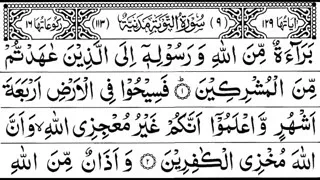 اٰیَاتُهَا ۱۲۹ (۹) سُوْرَةُ التَّوْبَةِ مَدَنِیَّةٌ (۱۱۳) رُكُوْعَاتُهَا ۱۶
بَرَآءَةٌ مِّنَ اللّٰهِ وَ رَسُوْلِهٖۤ اِلَى الَّذِیْنَ عٰهَدْتُّمْ
مِّنَ الْمُشْرِكِیْنَ ۱ فَسِیْحُوْا فِی الْاَرْضِ اَرْبَعَةَ
اَشْهُرٍ وَّ اعْلَمُوْۤا اَنَّكُمْ غَیْرُ مُعْجِزِی اللّٰهِ ۙ وَ اَنَّ
اللّٰهَ مُخْزِی الْكٰفِرِیْنَ ۲ وَ اَذَانٌ مِّنَ اللّٰهِ